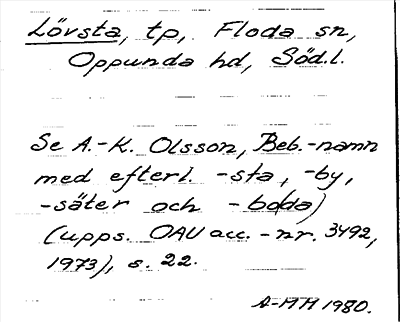 Lövsta, tp, Floda sn,
Oppunda hd, Södl.
Se A.-K. Olsson, Beb.-namn
med efterl. -sta, -by,
-säter och -bo(da)
(upps. OAU acc.-nr. 3492,
1973), s. 22.
A-MH 1980.